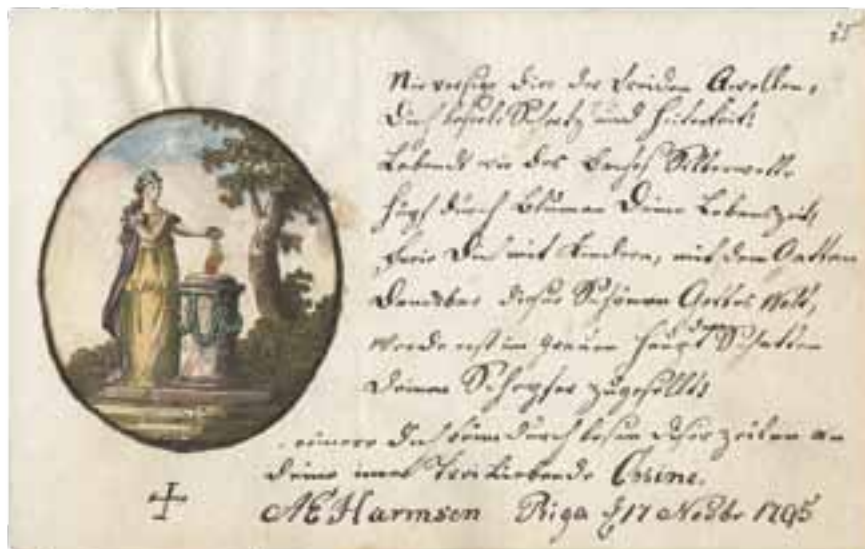 25
Nie versiege Dir der Freiden Qwellen,
Dich Schertz und Heiterkeit;
wie des Baches Silberwelle
hüpf durch Blumen Deine Lebenszeit,
Freie Dich mit Kindern, mit dem Gatten
dieser Schönen Gottes Welt,
Werde erst im grauen Haupt Schatten
Deinem Schöpfer zugesellt
Dich beim durch lesen dieser zeilen an
Deine Treu liebende Cusine.
AE Harmsen Riga d 17 Novbr 1795